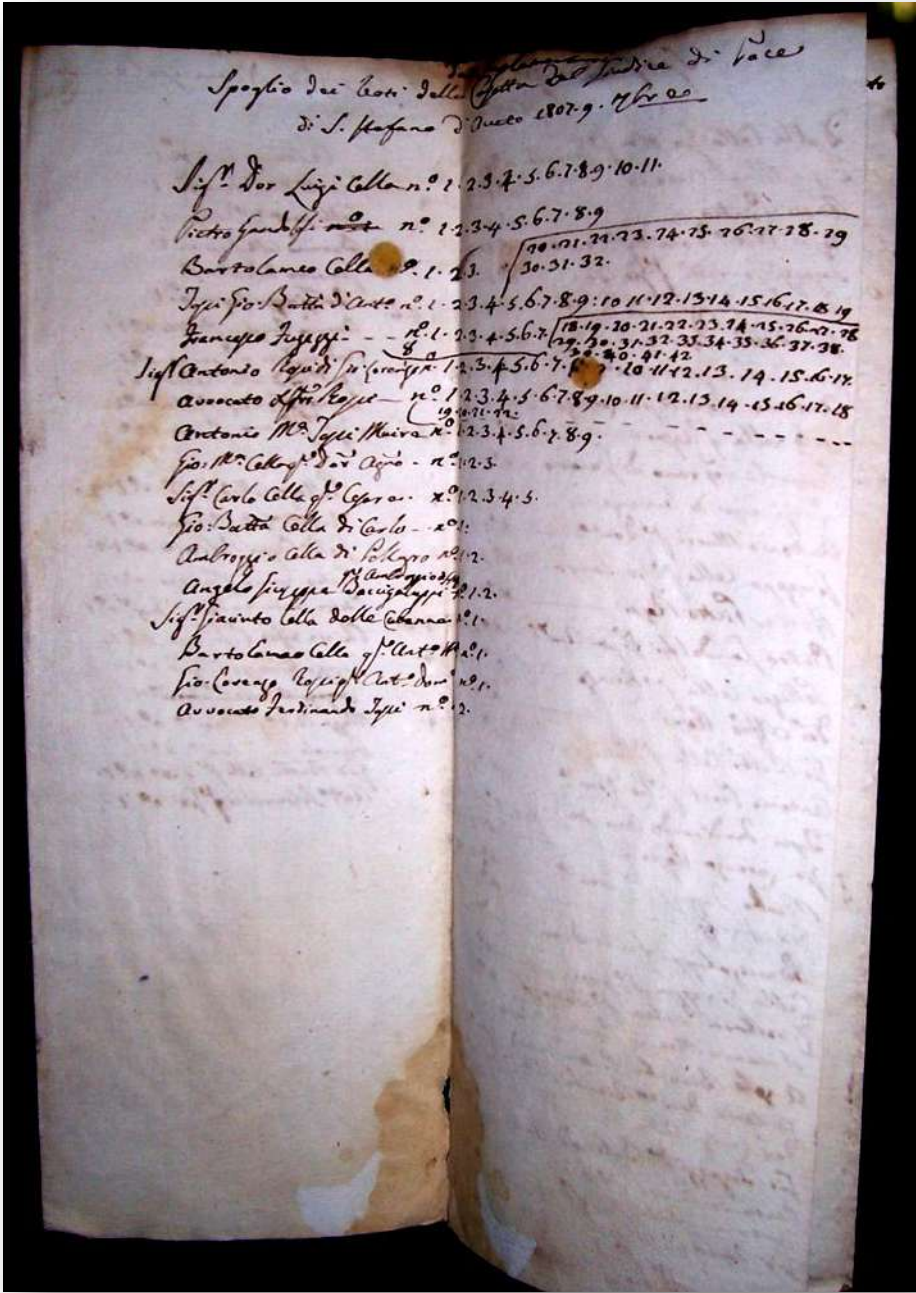 Spoglio dei Voti della del Giudice di Pace
di S. Stefano d'Aveto 1807. 9. 7bre
Sigr. Dor Luigi Cella n.º 1.2.3.4.5.6.7.8.9.10.11.
Pietro n.º 1.2.3.4.5.6.7.8.9
20.21.22.23.24.25.26.27.28.29
Bartolameo Cella nº. 1.2.3.
30.31.32.
Gio: Batta d'Antº nº. 1.2.3.4.5.6.7.8.9:10.11.12.13.14.15.16.17.18.19
Francesco - - nº.1.2.3.4.5.6.7.
18.19.20.21.22.23.24.25.26.27.28
8
29.30.31.32.33.34.35.36.37.38.
39.40.41.42
Sigr Antonio di Gio: Lorenzo n. 1.2.3.4.5.6.7. 10.11.12.13.14.15.16.17.
Avvocato nº 1.2.3.4.5.6.7.8.9.10.11.12.13.14.15.16.17.18
19.20.21.22.
Antonio Mª nº 1.2.3.4.5.6.7.8.9.
Gio: Mª Cella qm. Dor - nº 1.2.3.
Sigr. Carlo Cella qm. nº 1.2.3.4.5.
Gio: Batta Cella di Carlo - nº 1.
Ambroggio Cella di nº 1.2.
qm Ambroggio
Angelo Giuseppe Baccigaluppi nº. 1.2.
Sigr. Giacinto Cella delle Cabanne nº 1.
Bartolameo Cella qm. Antº Mª nº.1.
Gio: Lorenzo qm. Antº Domº nº.1.
Avvocato Ferdinando nº 2.